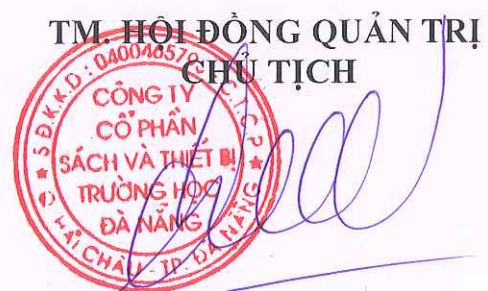 TM. HỘI ĐỒNG QUẢN TRỊ
CHỦ TỊCH
CÔNG TY
CỔ PHẦN
SÁCH VÀ THIẾT BỊ
TRƯỜNG HỌC
ĐÀ NẴNG
HẢI CHÂU - TP. ĐÀ NẴNG